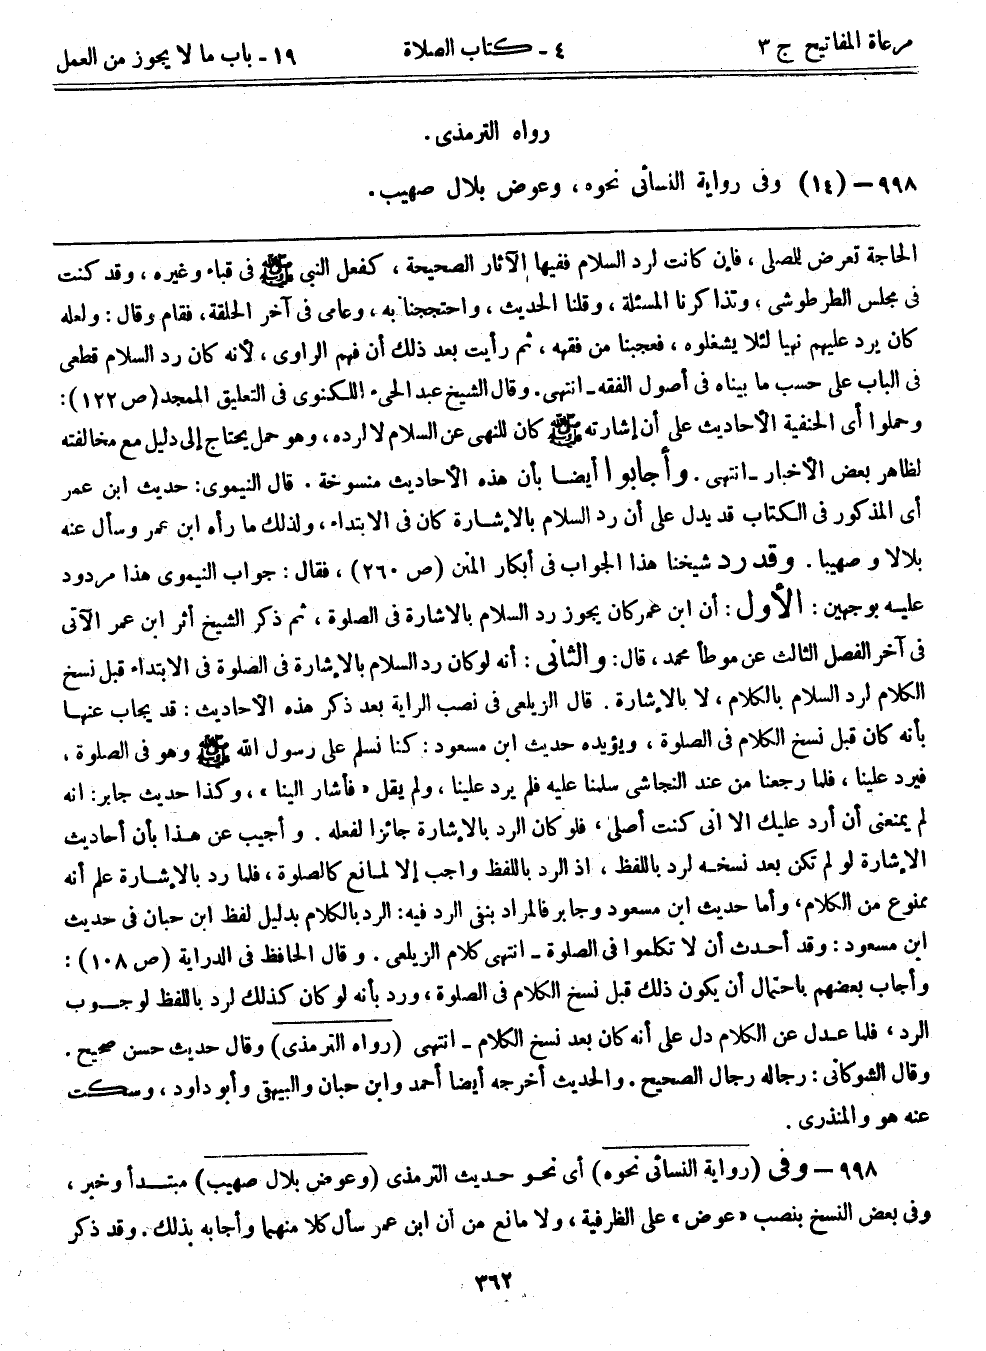 مرعاة المفاتيح ج ٣ ٤ - كتاب الصلاة ١٩ - باب ما لا يجوز من العمل
رواه الترمذى.
٩٩٨ – (١٤) وفى رواية النسائى نحوه، وعوض بلال صهيب.
الحاجة تعرض للصلى، فإن كانت لرد السلام ففيها الآثار الصحيحة، كفعل النبى ﷺ فى قباء وغيره، وقد كنت
فى مجلس الطرطوشى، وتذاكرنا المسئلة، وقلنا الحديث، واحتججنا به، وعامى فى آخر الحلقة، فقام وقال: ولعله
كان يرد عليهم نهيا لئلا يشغلوه، فعجبنا من فقهه، ثم رأيت بعد ذلك أن فهم الراوى، لأنه كان رد السلام قطعى
فى الباب على حسب ما بيناه فى أصول الفقه ـ انتهى. وقال الشيخ عبد الحىء اللكنوى فى التعليق الممجد (ص ١٢٢):
وحملوا أى الحنفية الأحاديث على أن إشارته ﷺ كان للنهى عن السلام لا لرده، وهو حمل يحتاج إلى دليل مع مخالفته
لظاهر بعض الأخبار ـ انتهى. وأجابوا أيضا بأن هذه الأحاديث منسوخة. قال النيموى: حديث ابن عمر
أى المذكور فى الكتاب قد يدل على أن رد السلام بالإشارة كان فى الابتداء، ولذلك ما رأه ابن عمر وسأل عنه
بلالا وصهيبا. وقد رد شيخنا هذا الجواب فى أبكار المنن (ص ٢٦٠)، فقال: جواب النيموى هذا مردود
عليه بوجهين: الأول: أن ابن عمر كان يجوز رد السلام بالاشارة فى الصلوة، ثم ذكر الشيخ أثر ابن عمر الآتى
فى آخر الفصل الثالث عن موطأ محمد، قال: والثانى: أنه لو كان رد السلام بالإشارة فى الصلوة فى الابتداء قبل نسخ
الكلام لرد السلام بالكلام، لا بالإشارة. قال الزيلعى فى نصب الراية بعد ذكر هذه الأحاديث: قد يجاب عنها
بأنه كان قبل نسخ الكلام فى الصلوة، ويؤيده حديث ابن مسعود: كنا نسلم على رسول الله ﷺ وهو فى الصلوة،
فيرد علينا، فلما رجعنا من عند النجاشى سلمنا عليه فلم يرد علينا، ولم يقل «فأشار الينا»، وكذا حديث جابر: انه
لم يمنعنى أن أرد عليك الا انى كنت أصلى، فلو كان الرد بالإشارة جائزا لفعله. وأجيب عن هذا بأن أحاديث
الإشارة لو لم تكن بعد نسخه لرد باللفظ، اذ الرد باللفظ واجب إلا لمانع كالصلوة، فلما رد بالإشارة علم أنه
ممنوع من الكلام، وأما حديث ابن مسعود وجابر فالمراد بنفى الرد فيه: الرد بالكلام بدليل لفظ ابن حبان فى حديث
ابن مسعود: وقد أحدث أن لا تكلموا فى الصلوة ـ انتهى كلام الزيلعى. وقال الحافظ فى الدراية (ص ١٠٨):
وأجاب بعضهم باحتمال أن يكون ذلك قبل نسخ الكلام فى الصلوة، ورد بأنه لو كان كذلك لرد باللفظ لوجوب
الرد، فلما عدل عن الكلام دل على أنه كان بعد نسخ الكلام ـ انتهى (رواه الترمذى) وقال حديث حسن صحيح.
وقال الشوكانى: رجاله رجال الصحيح. والحديث أخرجه أيضا أحمد وابن حبان والبيهقى وأبو داود، وسكت
عنه هو والمنذرى.
٩٩٨ – وفى (رواية النسائى نحوه) أى نحو حديث الترمذى (وعوض بلال صهيب) مبتدأ وخبر،
وفى بعض النسخ بنصب «عوض» على الظرفية، ولا مانع من أن ابن عمر سأل كلا منهما وأجابه بذلك. وقد ذكر
٣٦٢